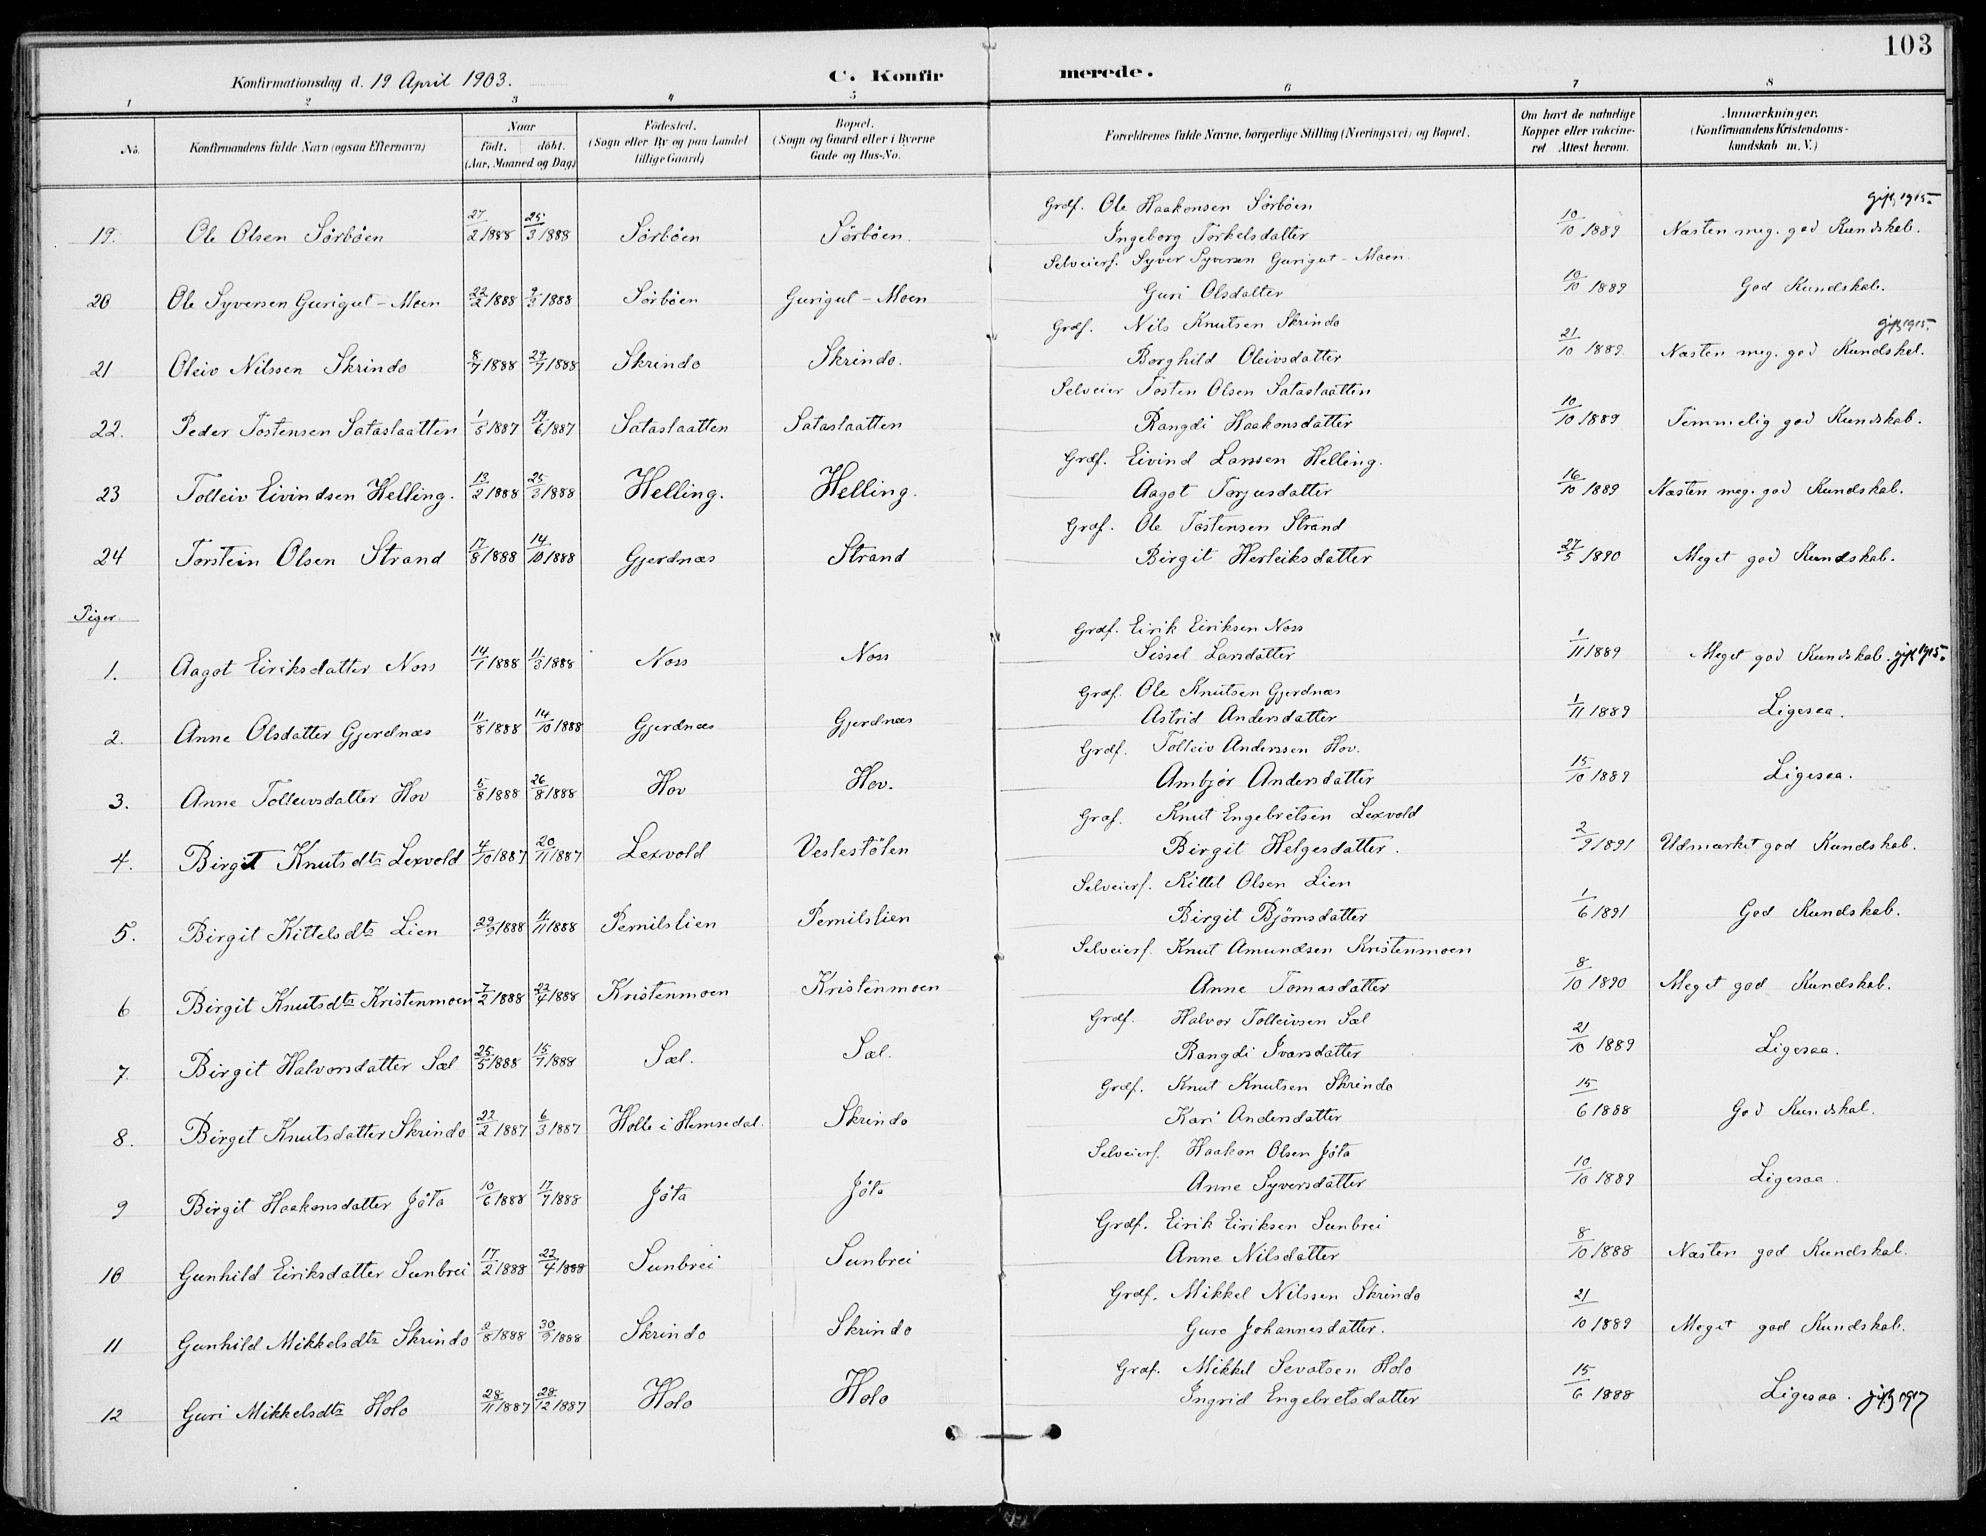 103
Konfirmationsdag d. 19 April 1903.
C. Konfirmerede.
1 2 3 4 5 6 7 8
No. Konfirmandens fulde Navn (ogsaa Efternavn) Naar født. døbt. (Aar, Maaned og Dag) Fødested. (Sogn eller By og paa Landet tillige Gaard) Bopæl. (Sogn og Gaard eller i Byerne Gade og Hus-No. Forældrenes fulde Navne, borgerlige Stilling (Næringsvei) og Bopæl. Om havt de naturlige Kopper eller vakcineret. Attest herom. Anmærkninger. (Konfirmandens Kristendomskundskab m. V.)
Grdf. Ole Haakonsen Sørbøen gift 1915
19. Ole Olsen Sørbøen 27/2 1888 25/3 1888 Sørbøen Sørbøen Ingeborg Torkelsdatter 10/10 1889 Næsten meg. god Kundskab.
Selveierf. Syver Syversen Gurigut-Moen
20 Ole Syversen Gurigut-Moen 22/2 1888 1888 Sørbøen Gurigut-Moen Guri Olsdatter 10/10 1889 God Kundskab.
Grdf. Nils Knutsen Skrindo gift 1915
21 Oleiv Nilssen Skrindo 8/7 1888 29/7 1888 Skrindo Skrindo. Borghild Oleivsdatter 21/10 1889 Næsten meg. god Kundskab.
Selveier Tosten Olsen Sataslaatten
22. Peder Tostensen Sataslaatten 1887 19/6 1887 Sataslaatten Sataslaatten Rangdi Haakonsdatter 10/10 1889 Temmelig god Kundskab.
Grdf. Eivind Larssen Helling.
23 Tolleiv Eivindsen Helling. 13/2 1888 25/3 1888 Helling. Helling. Aagot Torjusdatter 16/10 1889 Næsten meg. god Kundskab.
Grdf. Ole Tostensen Strand
24 Torstein Olsen Strand 17/8 1888 14/10 1888 Gjerdnæs Strand Birgit Herleiksdatter 27/5 1890 Meget god Kundskab.
Piger.
Grdf. Eirik Eiriksen Noss
1. Aagot Eiriksdatter Noss 14/1 1888 11/3 1888 Noss Noss Sissel Larsdatter 1/11 1889 Meget god Kundskab. gift 1915.
Grdf. Ole Knutsen Gjerdnæs
2. Anne Olsdatter Gjerdnæs 11/8 1888 14/10 1888 Gjerdnæs Gjerdnæs Astrid Andersdatter 1/11 1889 Ligesaa.
Grdf. Tolleiv Anderssen Hov.
3. Anne Tolleivsdatter Hov 5/8 1888 26/8 1888 Hov Hov. Ambjør Andersdatter 15/10 1889 Ligesaa.
Grdf. Knut Engebretsen Lexvold
4. Birgit Knutsdtr Lexvold 4/10 1887 20/11 1887 Lexvold Veslestølen Birgit Helgesdatter. 2/9 1891 Udmærket god Kundskab.
Selveierf. Kittel Olsen Lien
5. Birgit Kittelsdtr Lien 29/9 1888 11/11 1888 Pernilslien Pernilslien Birgit Bjørnsdatter 1/6 1891 God Kundskab.
Selveierf. Knut Amundsen Kristenmoen
6 Birgit Knutsdtr Kristenmoen 7/2 1888 22/4 1888 Kristenmoen Kristenmoen Anne Tomasdatter 8/10 1890 Meget god Kundskab.
Grdf. Halvor Tolleivsen Sæl
7. Birgit Halvorsdatter Sæl 25/5 1888 15/7 1888 Sæl. Sæl. Rangdi Ivarsdatter 21/10 1889 Ligesaa.
Grdf. Knut Knutsen Skrindo
8. Birgit Knutsdatter Skrindo 22/2 1887 6/3 1887 Holle i Hemsedal. Skrindo Kari Andersdatter 15/6 1888 God Kundskab.
Selveierf. Haakon Olsen Jøta
9 Birgit Haakonsdatter Jøta 10/6 1888 17/7 1888 Jøta Jøta Anne Syversdatter 10/10 1889 Ligesaa
Grdf. Eirik Eiriksen Sunbrei
10 Gunhild Eiriksdatter Sunbrei 17/2 1888 22/4 1888 Sunbrei Sunbrei Anne Nilsdatter 8/10 1888 Næsten god Kundskab.
Grdf. Mikkel Nilssen Skrindo
11 Gunhild Mikkelsdtr Skrindo 1888 30/9 1888 Skrindo Skrindo Guro Johannesdatter. 21/10 1889 Meget god Kundskab.
Grdf. Mikkel Sevatsen Holo
12 Guri Mikkelsdtr Holo 28/11 1887 28/12 1887 Holo Holo Ingrid Engebretsdatter 15/6 1888 Ligesaa. gift 1917